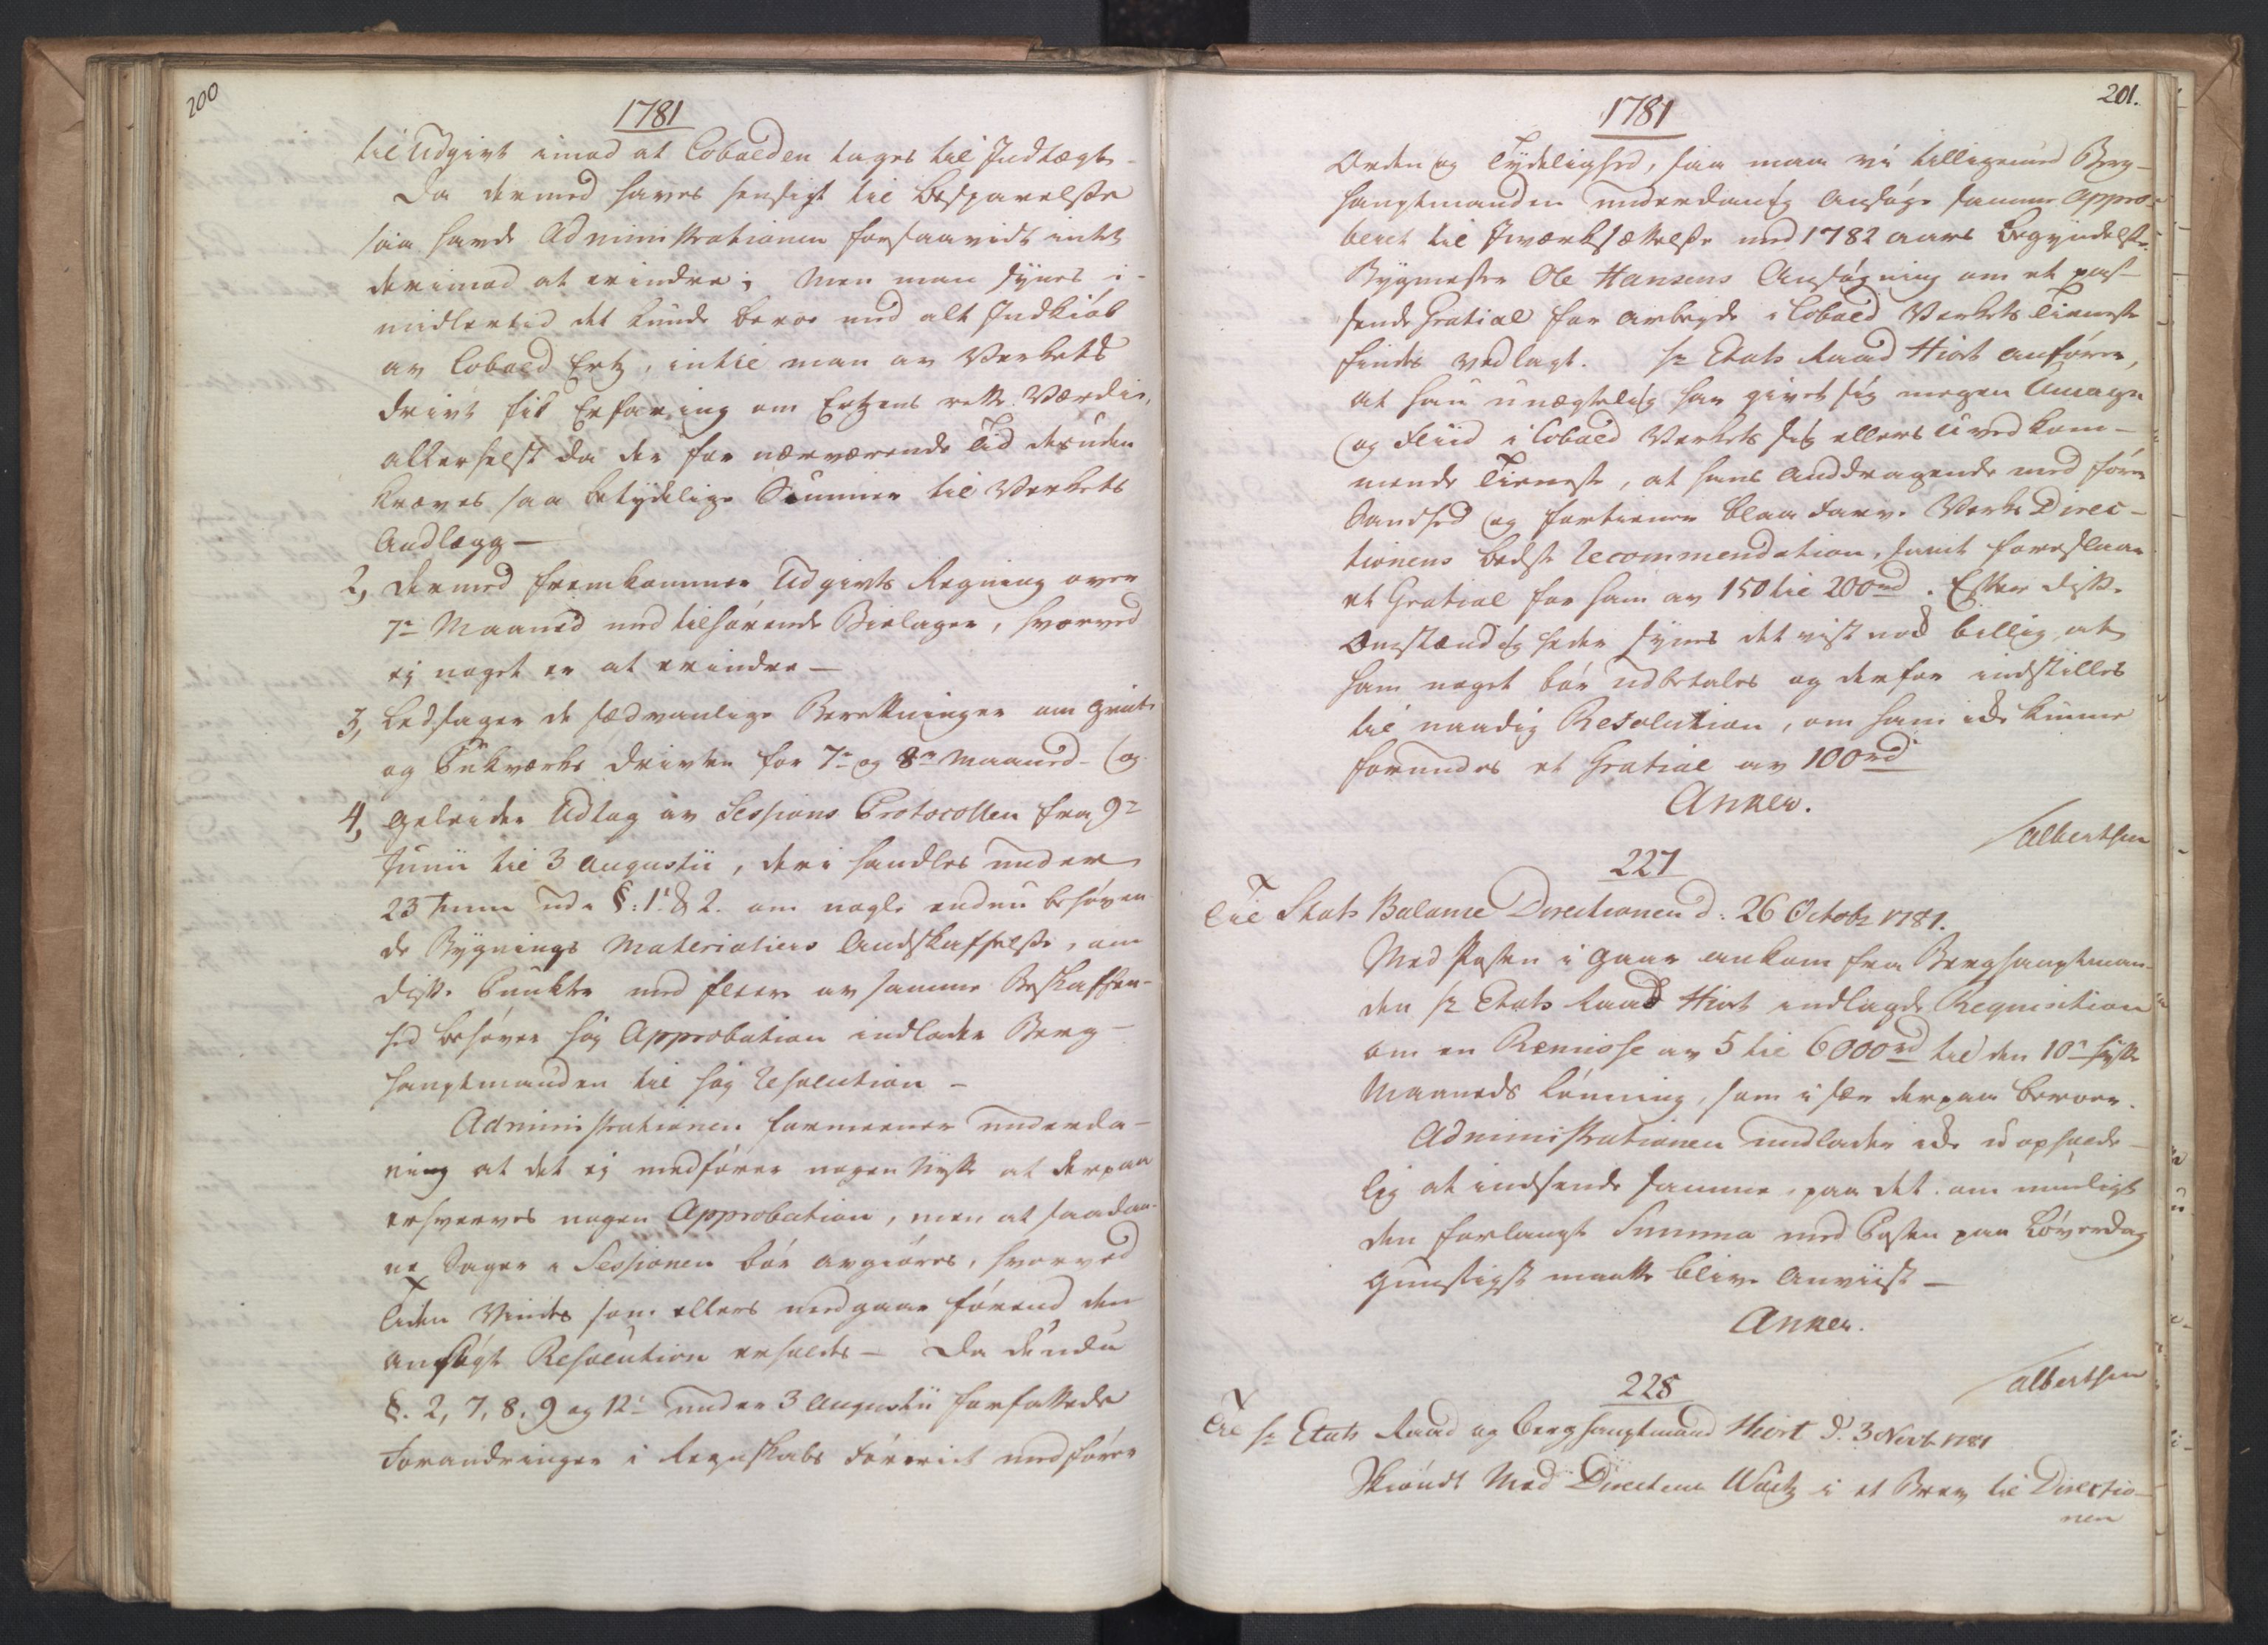 200
1781
til Udgivt imod at Cobolden tages til Indtægt.
Da dermed haves hensigt til Besparelse
saa havde Administrationen forsaavidt intet
derimod at erindre; Men man synes i-
midlertid det kunde beroe med alt Indkiøb
av Cobold Ertz, intil man av Verkets
Drivt fik Erfaring om Ertzens rette Værdie,
allerhelst da der for nærværende Tid desuden
kræves saa betydelige Summer til Verkets
Andlægg—
2, dermed fremkommer Udgivts Regning over
7de Maaned med tilhørende Bielager, hvorved
ej noget er at erindre—
3, Ledsager de sædvanlige Beretninger om Grube
og Pukværks Driften for 7de og 8de Maaned— og
4, Geleider Udtog av Sessions Protocollen fra 9de
Junii til 3 Augustii, deri handles under
23 Junii ude §: 1. & 2. om nogle endnu behøven-
de Bygnings Materialiers Andskaffelse, om
disse Puncter med flere av samme Beskaffen-
hed behøver høj Approbation indlader Berg-
hauptmanden til høj Resolution—
Administrationen formeener underda-
nig at det ej medfører nogen Nytte at derpaa
erhverves nogen Approbation, men at saadan-
ne Sager i Sessionen bør avgiøres, hvorved
Tiden Vindes som ellers medgaar førend den
ansøgt Resolution erholdes— Da de under
§. 2, 7, 8, 9 og 12te under 3 Augustii forfattede
Forandringer i Regnskabs Føreriet medfører
201.
1781
Orden og Tydelighed, saa maa vi tilligemed Berg-
hauptmanden underdanig Ansøge samme Appro-
beret til Iværksættelse med 1782 aars Begyndelse.
Bygmester Ole Hansens Ansøgning om et pas-
sende Gratial for Arbeyde i Cobold Verkets Tieneste
findes vedlagt. Hr Etats Raad Hiort anfører,
at han unægtelig har givet sig megen Umage
og Fliid i Cobold Verkets sig ellers uvedkom-
mende Tieneste, at hans Anddragende medfører
Sandhed og fortiener Blaa Farve Verks Direc-
tionens bedste Recommendation, samt foreslaar
et Gratial for ham av 150 til 200 rd. Efter disse
Omstændigheder synes det vist nok billig at
ham noget bør udbetales og derfor indstilles
til naadig Resolution, om ham ikke kunne
forundes et Gratial av 100 rd
Anker.
Albertsen
227
Til Stats Balance Directionen d: 26 Octobr 1781.
Med Posten i Gaar ankom fra Berghauptman-
den Hr Etats Raad Hiort indlagde Requisition
om en Remisse av 5 til 6000 rd til den 10de sidste
Maaneds Lønning, som i sær derpaa beroer.
Administrationen undlader ikke uopholde-
lig at indsende samme, paa det om mueligt
den forlangte Summa med Posten paa Løverdag
gunstigst maatte blive Anviist—
Anker.
Albertsen
228
Til Hr Etats Raad og Berghauptmand Hiort d. 3 Novbr 1781
Skiøndt Med Directeur Waitz i et Brev til Directio-
nen